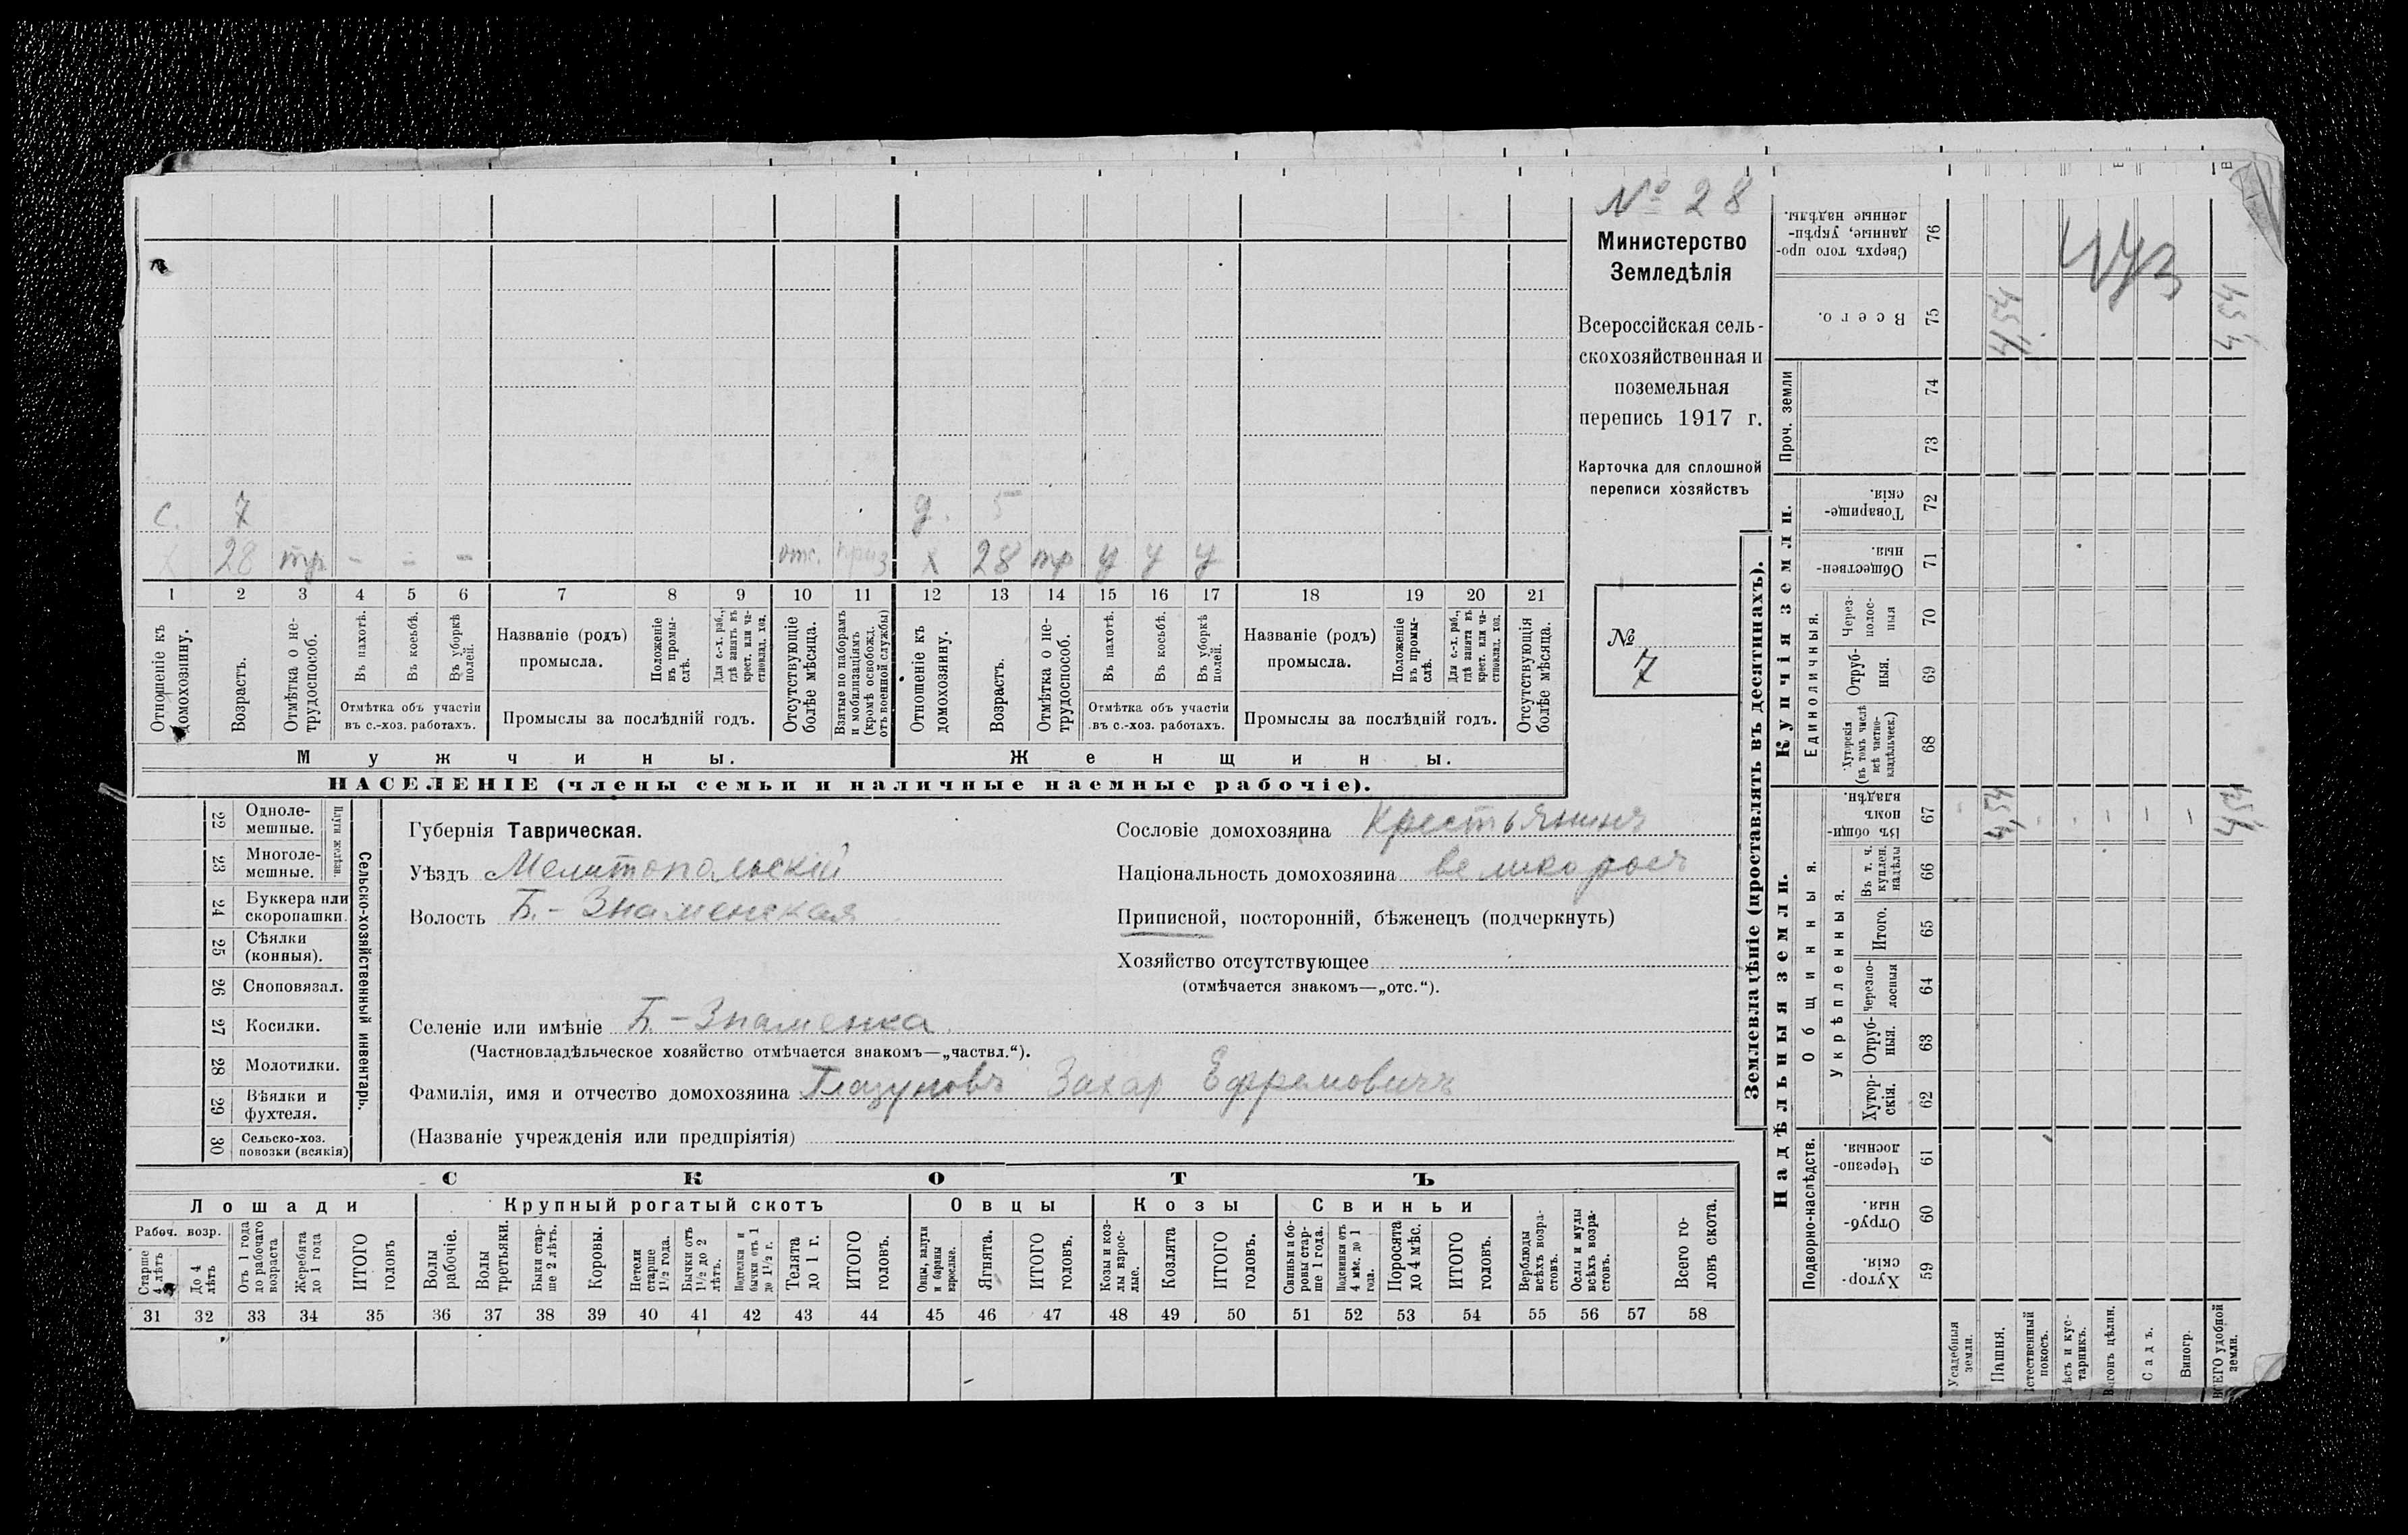 № 28
Министерство
Земледѣлія
Всероссійская сель-
скохозяйственная и
поземельная
перепись 1917 г.
Карточка для сплошной
переписи хозяйствъ
№
7
с. 7 д. 5
х 28 тр - - - отс. приз х 28 тр у у у
1 2 3 4 5 6 7 8 9 10 11 12 13 14 15 16 17 18 19 20 21
Отношеніе къ домохозяину.
Возрастъ.
Отмѣтка о не-трудоспособ.
Въ пахотѣ.
Въ косьбѣ.
Въ уборкѣ полей.
Отмѣтка объ участіи
въ с.-хоз. работахъ.
Названіе (родъ)
промысла.
Положеніе въ промы-слѣ.
Для с.-х. раб., гдѣ занятъ въ крест. или ча-стновлад. хоз.
Промыслы за послѣдній годъ.
Отсутствующіе болѣе мѣсяца.
Взятые по наборамъ и мобилизаціямъ (кромѣ освобожд. отъ военной службы)
Отношеніе къ домохозяину.
Возрастъ.
Отмѣтка о не-трудоспособ.
Въ пахотѣ.
Въ косьбѣ.
Въ уборкѣ полей.
Отмѣтка объ участіи
въ с.-хоз. работахъ.
Названіе (родъ)
промысла.
Положеніе въ промы-слѣ.
Для с.-х. раб., гдѣ занята въ крест. или ча-стновлад. хоз.
Промыслы за послѣдній годъ.
Отсутствующія болѣе мѣсяца.
Мужчины. Женщины.
НАСЕЛЕНІЕ (члены семьи и наличные наемные рабочіе).
22 Одноле-мешные.
23 Многоле-мешные.
Плуги желѣзн.
24 Буккера или скоропашки.
25 Сѣялки (конныя).
26 Сноповязал.
27 Косилки.
28 Молотилки.
29 Вѣялки и фухтеля.
30 Сельско-хоз. повозки (всякія)
Сельско-хозяйственный инвентарь.
Губернія Таврическая.
Уѣздъ Мелитопольскій
Волость Б.-Знаменская
Сословіе домохозяина Крестьянинъ
Національность домохозяина великороссъ
Приписной, посторонній, бѣженецъ (подчеркнуть)
Хозяйство отсутствующее
(отмѣчается знакомъ—„отс.“).
Селеніе или имѣніе Б.-Знаменка
(Частновладѣльческое хозяйство отмѣчается знакомъ—„частвл.“).
Фамилія, имя и отчество домохозяина Глазуновъ Захар Ефремовичъ
(Названіе учрежденія или предпріятія)
СКОТЪ
Лошади Крупный рогатый скотъ Овцы Козы Свиньи
Рабоч. возр.
Старше 4 лѣтъ
До 4 лѣтъ
Отъ 1 года до рабочаго возраста
Жеребята до 1 года
ИТОГО головъ
Волы рабочіе.
Волы третьяки.
Быки стар-ше 2 лѣтъ.
Коровы.
Нетели старше 1½ года.
Бычки отъ 1½ до 2 лѣтъ.
Подтелки и бычки отъ 1 до 1½ г.
Телята до 1 г.
ИТОГО головъ.
Овцы, валухи и бараны взрослые.
Ягнята.
ИТОГО головъ.
Козы и коз-лы взрос-лые.
Козлята
ИТОГО головъ.
Свиньи и бо-ровы стар-ше 1 года.
Подсвинки отъ 4 мѣс. до 1 года.
Поросята до 4 мѣс.
ИТОГО головъ.
Верблюды всѣхъ возра-стовъ.
Ослы и мулы всѣхъ возра-стовъ.
Всего го-ловъ скота.
31 32 33 34 35 36 37 38 39 40 41 42 43 44 45 46 47 48 49 50 51 52 53 54 55 56 57 58
Землевладѣніе (проставлять въ десятинахъ).
Надѣльныя земли.
Купчія земли.
Проч. земли
Подворно-наслѣдств.
Общинныя.
Укрѣпленныя.
Единоличныя.
Сверхъ того про-данные, укрѣп-ленные надѣлы. 76
Всего. 75 4,54 4,54
74
73
Товарище-скія. 72
Обществен-ныя. 71
Через-полос-ныя 70
Отруб-ныя. 69
Хуторскія (въ томъ числѣ всѣ частно-владѣльческ.) 68
Въ общи-номъ владѣн. 67 - 4,54 - - - - - 4,54
Въ т. ч. куплен. надѣлы 66
Итого. 65
Черезпо-лосныя 64
Отруб-ныя. 63
Хутор-скія. 62
Черезпо-лосныя. 61
Отруб-ныя. 60
Хутор-скія. 59
Усадебныя земли.
Пашня.
Естественный покосъ.
Лѣсъ и кус-тарникъ.
Выгонъ цѣлин.
Садъ.
Виногр.
ВСЕГО удобной земли.